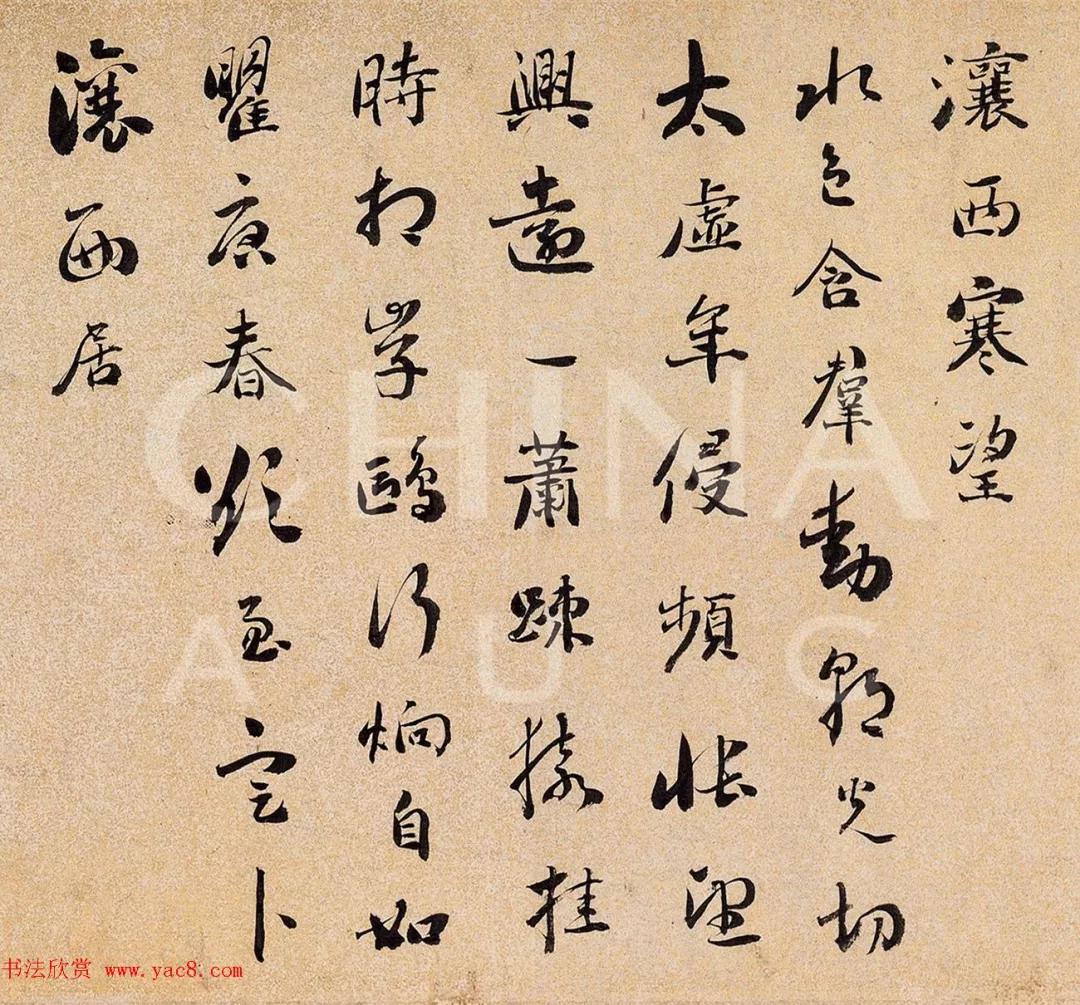 瀼西寒望
水色含羣動朝光切
太虛年侵頻悵望
興遠一蕭踈猿挂
時相學鷗行炯自如
瞿唐春欲至定卜
瀼西居
CHINA
A U C
书法欣赏 www.yac8.com